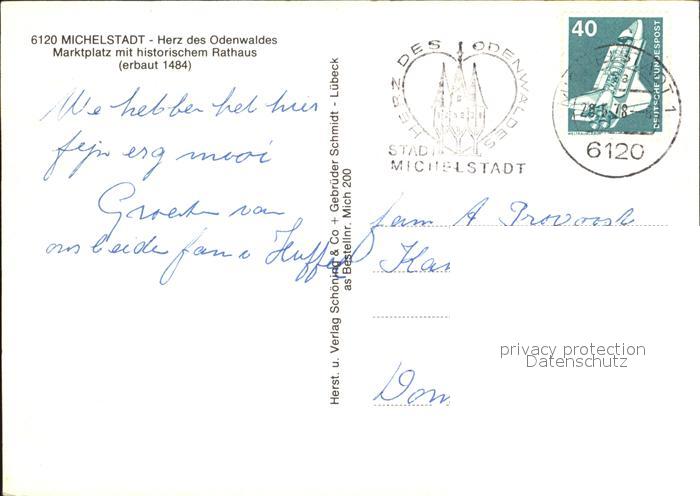 6120 MICHELSTADT - Herz des Odenwaldes
Marktplatz mit historischem Rathaus
(erbaut 1484)
We hebben het hier
fijn erg mooi
Groeten van
ons beide fam
Herst. u. Verlag Schöning & Co + Gebrüder Schmidt - Lübeck
as Bestellnr. Mich 200
HERZ DES ODENWALDES
STADT
MICHELSTADT
40
DEUTSCHE BUNDESPOST
6120
fam A Provoost
privacy protection
Datenschutz